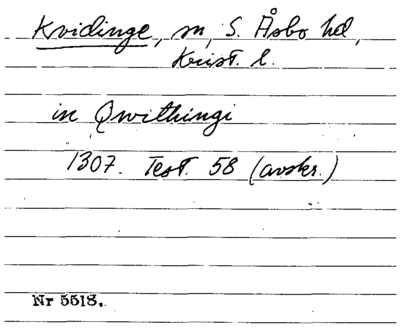 Kvidinge, sn, S. Åsbo hd,
Krist. l.
in Qwithingi
1307. Test. 58 (avskr.)
Nr 5518.